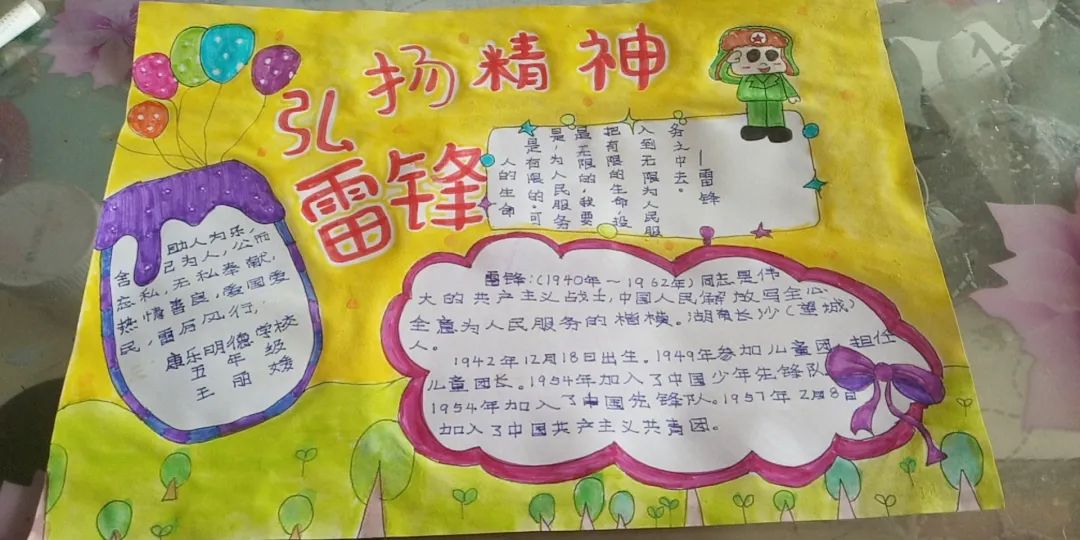 弘扬精神
雷锋
人的生命
是有限的。可
是,为人民服务
是无限的,我要
把有限的生命,投
入到无限为人民服
务之中去。
—雷锋
助人为乐,
舍己为人,公而
忘私,无私奉献,
热情善良,爱国爱
民,雷厉风行,
康乐明德学校
五年级
王丽
雷锋:(1940年~1962年)同志是伟
大的共产主义战士,中国人民解放写全心
全意为人民服务的楷模。湖南长沙(望城)
人。
1942年12月18日出生。1949年参加儿童团,担任
儿童团长。1954年加入了中国少年先锋队
1954年加入了中国先锋队。1957年2月8日
加入了中国共产主义共青团。